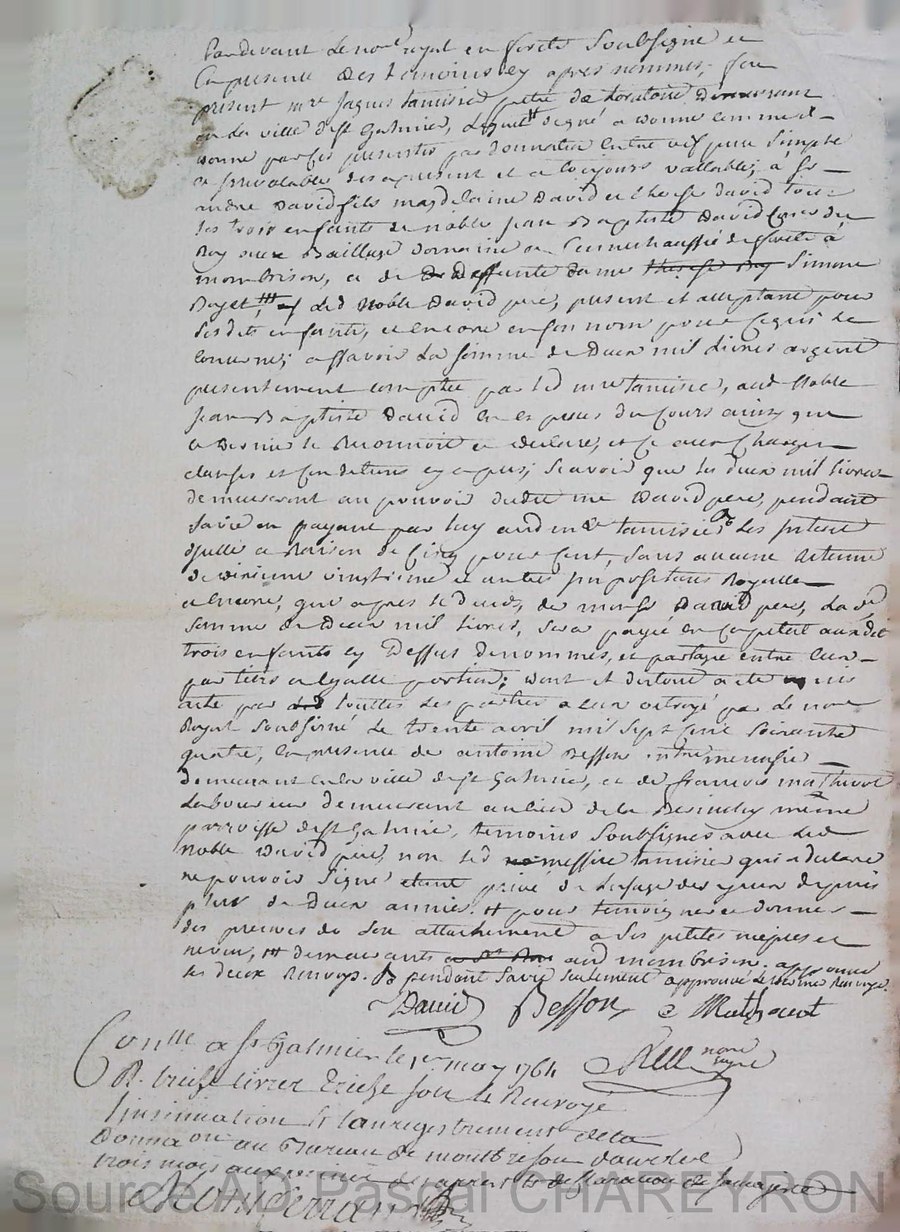 Pardevant le nore royal en forets soubsigné et
en presence des temoins cy apres nommes, feu
present mre Jaques tamisié pretre de loratoire demeurant
en la ville de st Galmier, lequel # de gré a donné comme il
donne par ces presentes par donnation entre vifs pure simple
et irrevocable des a present et a toujours vallable, a
André David fils magdelaine David et therese david tous
les trois enfants de noble Jean Baptiste David du
Roy aux Baillage Domaine et Cenechaussée de forets à
monbrison, et de deffunte dame Simone
Royet ledt Noble David pere, present et acceptant pour
sesdits enfants, et encore en son nom pour ce qui le
concerne; a sçavoir la somme de deux mil livres argent
presentement comptée par led mre tamisié, aud Noble
Jean Baptiste David en especes du cours ainsy que
ce dernier le reconnoit et declare, et ce aux charges
clauses et conditions cy apres; scavoir que les deux mil livres
demeureront au pouvoir dudit me David pere, pendant
sa vie en payant par luy aud mre tamisié les interet
d'icelle a raison de cinq pour cent, sans aucune retenue
de dixieme vingtieme et autres impositions Royalle
et encore, que apres le deces, de David pere, lad
somme de deux mil livres, sera payée en auxdt
trois enfants cy dessus denommes, et partagé entre eux
par tiers et egalle portion; dont et du tout acte
par touttes les parties a eux octroyé par le nore
Royal soubsigné le trente avril mil sept cent soixante
quatre, en presence de antoine Besson mre menusié
demeurant en la ville de st Galmier, et de francois mathevot
laboureur demeurant au lieu de la même
parroisse de st Galmier, temoins soubsignes avec led
noble David pere, non led messire tamisié qui a declaré
ne pouvoir signé etant privé de l'usage des yeux depuis
plus de deux années. # pour temoigner et donner
des preuves de son attachement a ses petites nieces et
neveu, ## demeurants aud monbrison. approuvé
les deux renvoys. pendant sa vie seulement approuvé le renvoy.
David Besson Mathevot
nore royal
Conlle a st Galmier le 1er may 1764
R. treize livres treize sols le Renvoyé
l'insinuation et l'enregistrement de la
Donnaon au Bureau de montbrison dans les
trois mois
Source AD Pascal CHAREYRON